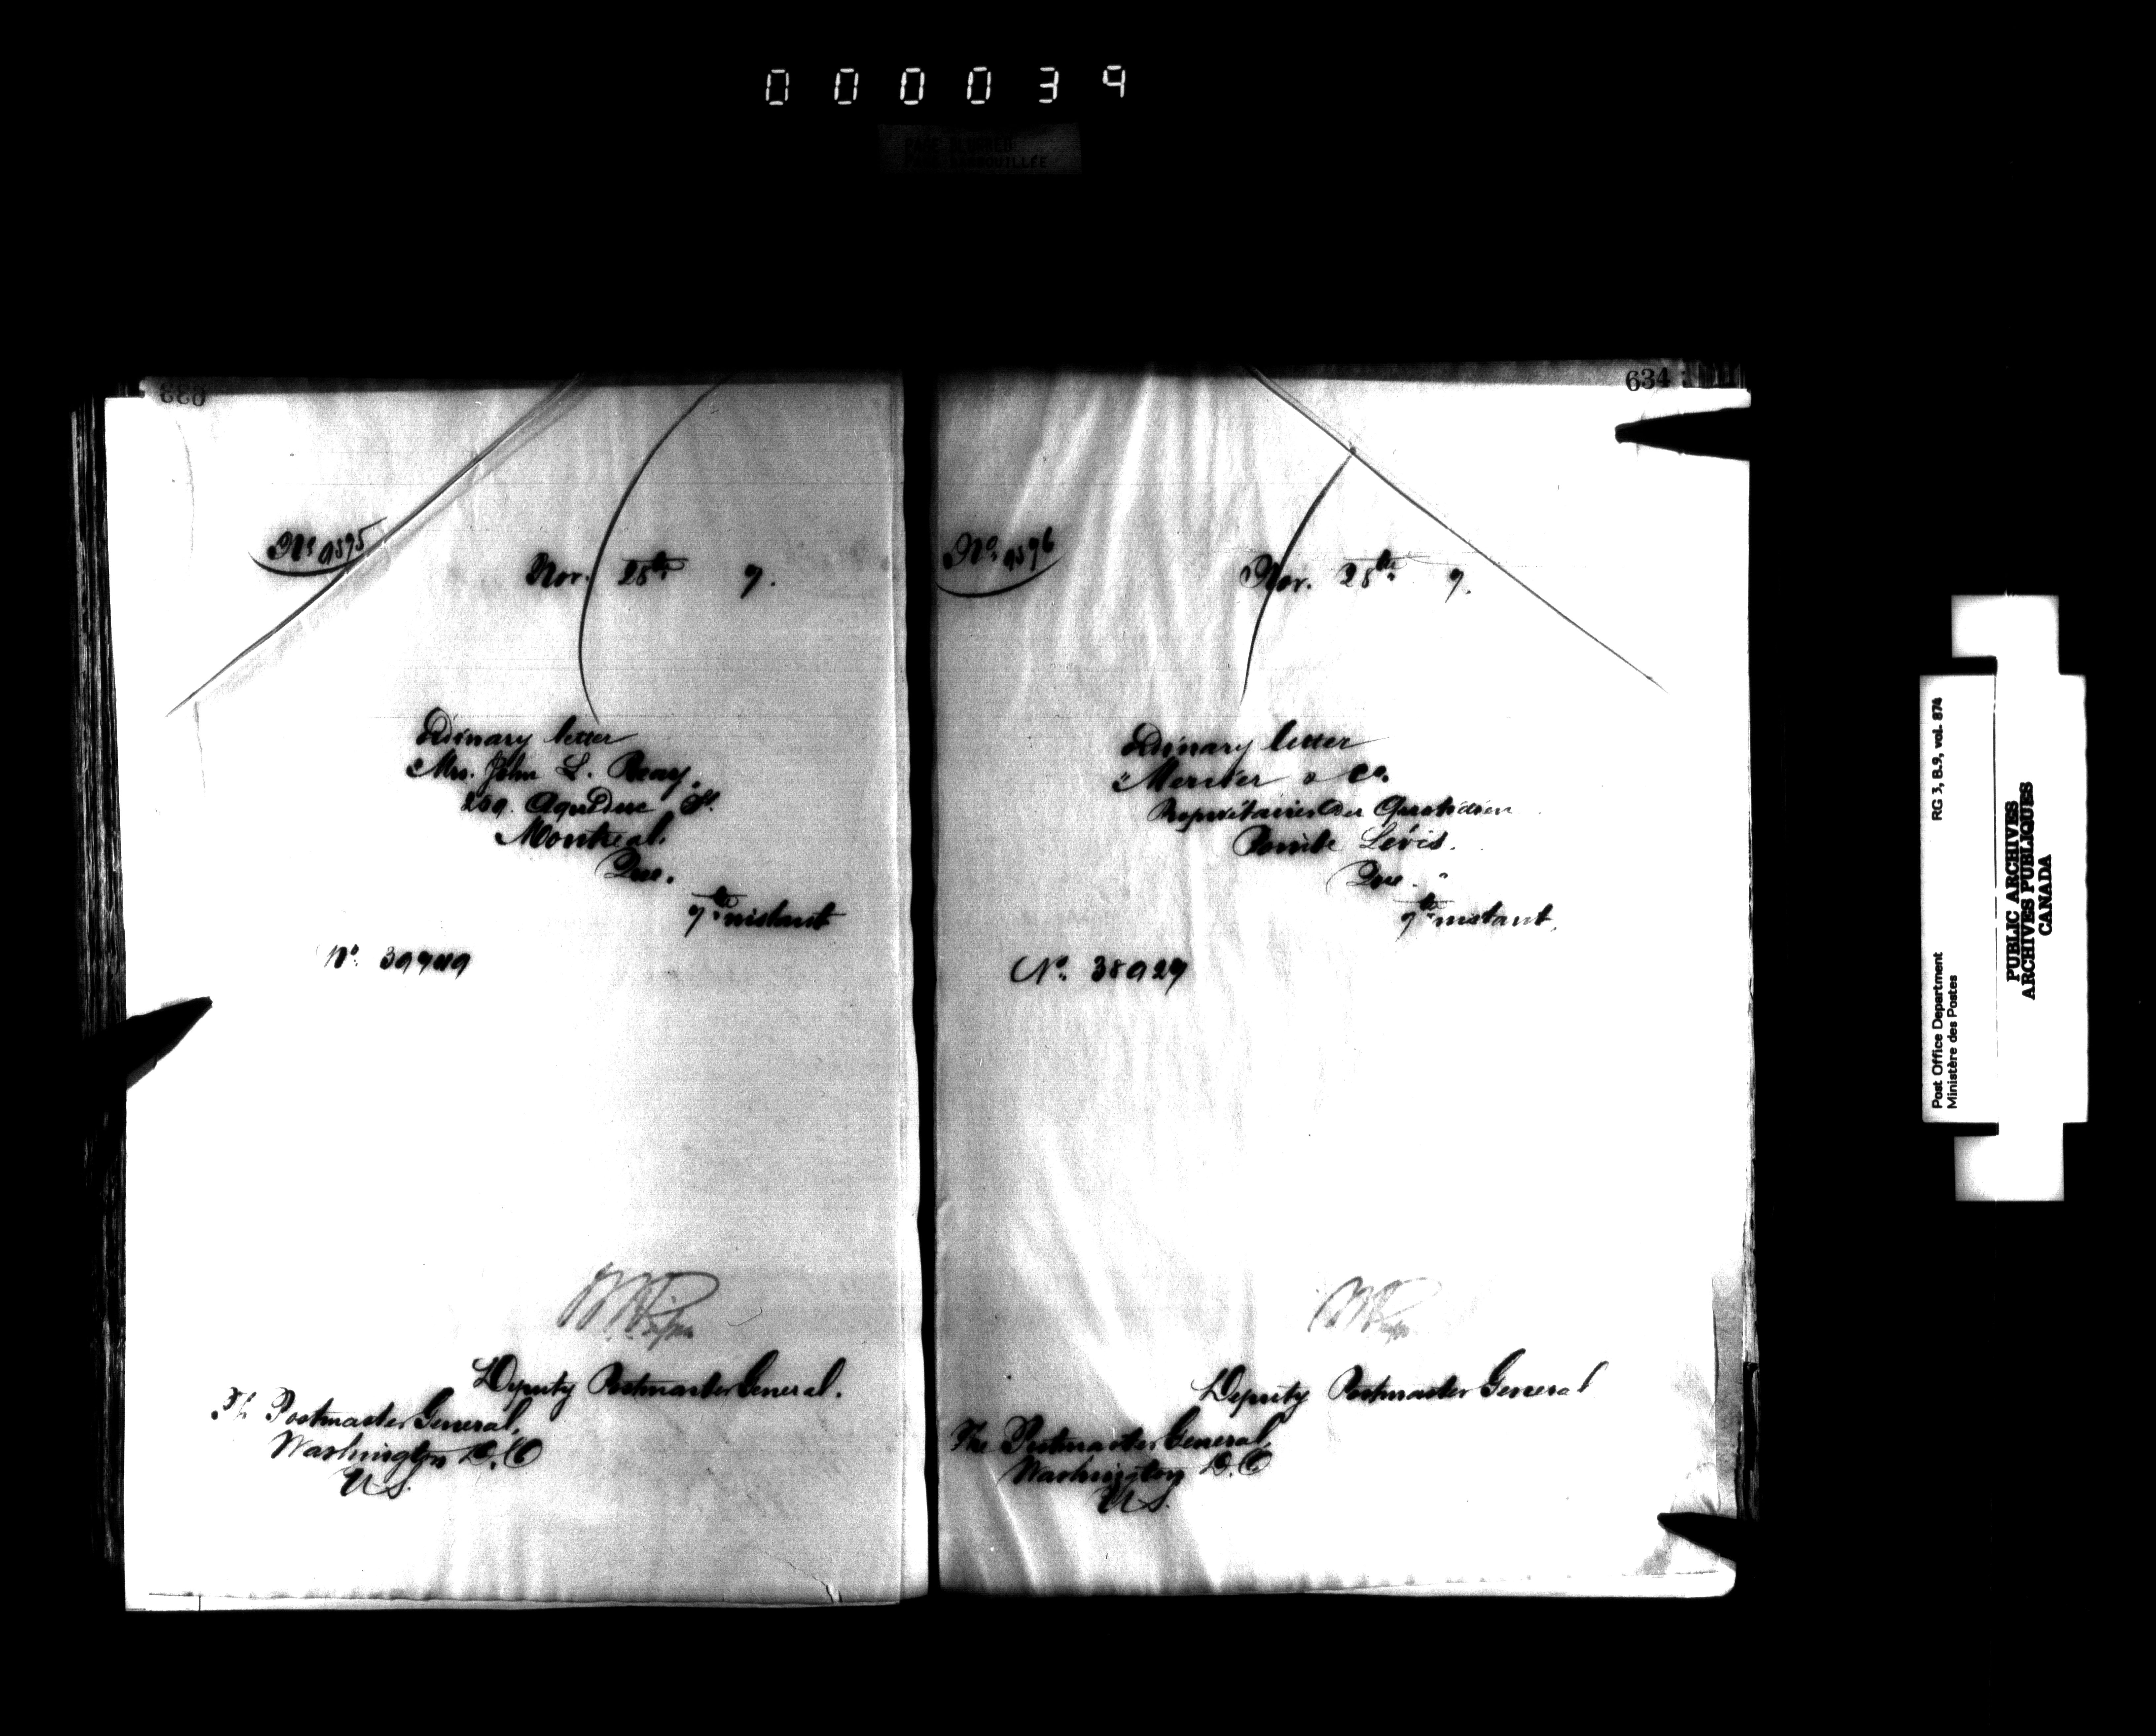 000034
PAGE BLURRED
PAGE EMBROUILLÉE
633
No. 9595
Nov. 28th 7.
Ordinary letter
"Mrs. John L. Reay,
259. Aqueduc St.
Montreal.
Que.
7th instant
No. 39749
Deputy Postmaster General.
The Postmaster General,
Washington D.C
U.S.
634
No. 9596
Nov. 28th 7.
Ordinary letter
"Mercier & Co.
Propriétaires du Quotidien
Pointe Lévis.
Que."
7th instant.
No. 38927
Deputy Postmaster General
The Postmaster General,
Washington D.C.
U.S.
Post Office Department
Ministère des Postes
RG 3, B.9, vol. 874
PUBLIC ARCHIVES
ARCHIVES PUBLIQUES
CANADA